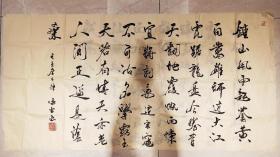 鐘山風雨起蒼黃
百萬雄師過大江
虎踞龍盤今勝昔
天翻地覆慨而慷
宜將剩勇追窮寇
不可沽名學霸王
天若有情天亦老
人間正道是滄
桑